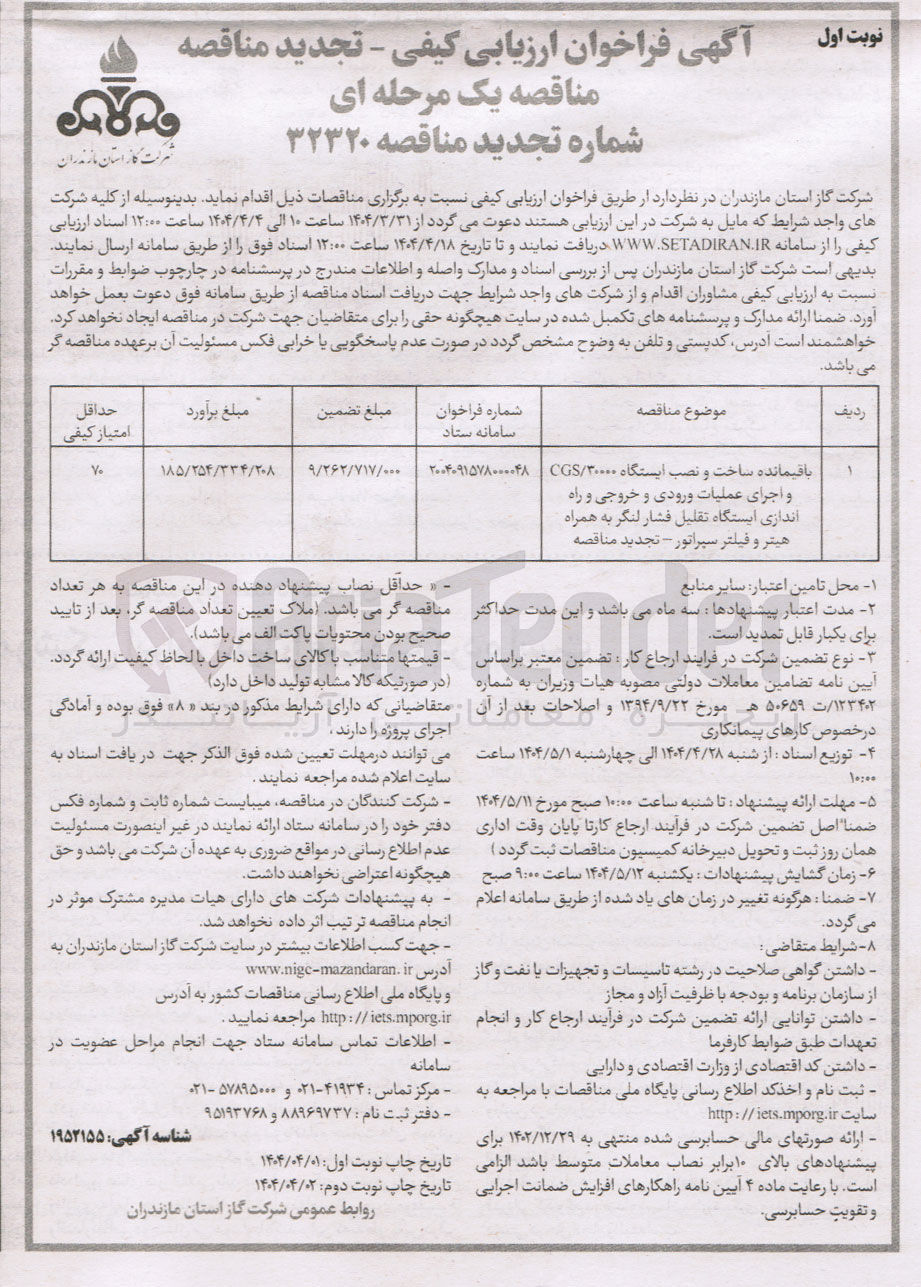 نوبت اول
آگهی فراخوان ارزیابی کیفی - تجدید مناقصه
مناقصه یک مرحله ای
شماره تجدید مناقصه ۳۲۳۲۰
شرکت گاز استان مازندران
شرکت گاز استان مازندران در نظردارد از طریق فراخوان ارزیابی کیفی نسبت به برگزاری مناقصات ذیل اقدام نماید. بدینوسیله از کلیه شرکت
های واجد شرایط که مایل به شرکت در این ارزیابی هستند دعوت می گردد از ۱۴۰۴/۳/۳۱ ساعت ۱۰ الی ۱۴۰۴/۴/۴ ساعت ۱۲:۰۰ اسناد ارزیابی
کیفی را از سامانه WWW.SETADIRAN.IR دریافت نمایند و تا تاریخ ۱۴۰۴/۴/۱۸ ساعت ۱۲:۰۰ اسناد فوق را از طریق سامانه ارسال نمایند.
بدیهی است شرکت گاز استان مازندران پس از بررسی اسناد و مدارک واصله و اطلاعات مندرج در پرسشنامه در چارچوب ضوابط و مقررات
نسبت به ارزیابی کیفی مشاوران اقدام و از شرکت های واجد شرایط جهت دریافت اسناد مناقصه از طریق سامانه فوق دعوت بعمل خواهد
آورد. ضمنا ارائه مدارک و پرسشنامه های تکمیل شده در سایت هیچگونه حقی را برای متقاضیان جهت شرکت در مناقصه ایجاد نخواهد کرد.
خواهشمند است آدرس، کدپستی و تلفن به وضوح مشخص گردد در صورت عدم پاسخگویی یا خرابی فکس مسئولیت آن برعهده مناقصه گر
می باشد.
ردیف
موضوع مناقصه
شماره فراخوان سامانه ستاد
مبلغ تضمین
مبلغ برآورد
حداقل امتیاز کیفی
۱
باقیمانده ساخت و نصب ایستگاه CGS/۳۰۰۰۰
و اجرای عملیات ورودی و خروجی و راه
اندازی ایستگاه تقلیل فشار لنگر به همراه
هیتر و فیلتر سپراتور - تجدید مناقصه
۲۰۰۴۰۹۱۵۷۸۰۰۰۰۴۸
۹/۲۶۲/۷۱۷/۰۰۰
۱۸۵/۲۵۴/۳۳۴/۲۰۸
۷۰
۱- محل تامین اعتبار: سایر منابع
۲- مدت اعتبار پیشنهادها : سه ماه می باشد و این مدت حداکثر
برای یکبار قابل تمدید است.
۳- نوع تضمین شرکت در فرایند ارجاع کار : تضمین معتبر براساس
آیین نامه تضامین معاملات دولتی مصوبه هیات وزیران به شماره
۱۲۳۴۰۲/ت ۵۰۶۵۹ هـ مورخ ۱۳۹۴/۹/۲۲ و اصلاحات بعد از آن
درخصوص کارهای پیمانکاری
۴- توزیع اسناد : از شنبه ۱۴۰۴/۴/۲۸ الی چهارشنبه ۱۴۰۴/۵/۱ ساعت
۱۰:۰۰
۵- مهلت ارائه پیشنهاد : تا شنبه ساعت ۱۰:۰۰ صبح مورخ ۱۴۰۴/۵/۱۱
ضمنا"اصل تضمین شرکت در فرآیند ارجاع کارتا پایان وقت اداری
همان روز ثبت و تحویل دبیرخانه کمیسیون مناقصات ثبت گردد )
۶- زمان گشایش پیشنهادات : یکشنبه ۱۴۰۴/۵/۱۲ ساعت ۹:۰۰ صبح
۷- ضمنا : هرگونه تغییر در زمان های یاد شده از طریق سامانه اعلام
می گردد.
۸-شرایط متقاضی:
- داشتن گواهی صلاحیت در رشته تاسیسات و تجهیزات یا نفت و گاز
از سازمان برنامه و بودجه با ظرفیت آزاد و مجاز
- داشتن توانایی ارائه تضمین شرکت در فرآیند ارجاع کار و انجام
تعهدات طبق ضوابط کارفرما
- داشتن کد اقتصادی از وزارت اقتصادی و دارایی
- ثبت نام و اخذکد اطلاع رسانی پایگاه ملی مناقصات با مراجعه به
سایت http://iets.mporg.ir
- ارائه صورتهای مالی حسابرسی شده منتهی به ۱۴۰۲/۱۲/۲۹ برای
پیشنهادهای بالای ۱۰برابر نصاب معاملات متوسط باشد الزامی
است. با رعایت ماده ۴ آیین نامه راهکارهای افزایش ضمانت اجرایی
و تقویت حسابرسی.
- « حداقل نصاب پیشنهاد دهنده در این مناقصه به هر تعداد
مناقصه گر می باشد. (ملاک تعیین تعداد مناقصه گر، بعد از تایید
صحیح بودن محتویات پاکت الف می باشد).
- قیمتها متناسب با کالای ساخت داخل با لحاظ کیفیت ارائه گردد.
(در صورتیکه کالا مشابه تولید داخل دارد)
متقاضیانی که دارای شرایط مذکور در بند « ۸» فوق بوده و آمادگی
اجرای پروژه را دارند ،
می توانند درمهلت تعیین شده فوق الذکر جهت در یافت اسناد به
سایت اعلام شده مراجعه نمایند .
- شرکت کنندگان در مناقصه، میبایست شماره ثابت و شماره فکس
دفتر خود را در سامانه ستاد ارائه نمایند در غیر اینصورت مسئولیت
عدم اطلاع رسانی در مواقع ضروری به عهده آن شرکت می باشد و حق
هیچگونه اعتراضی نخواهند داشت.
- به پیشنهادات شرکت های دارای هیات مدیره مشترک موثر در
انجام مناقصه تر تیب اثر داده نخواهد شد.
- جهت کسب اطلاعات بیشتر در سایت شرکت گاز استان مازندران به
آدرس www.nigc-mazandaran.ir
و پایگاه ملی اطلاع رسانی مناقصات کشور به آدرس
http://iets.mporg.ir مراجعه نمایید .
- اطلاعات تماس سامانه ستاد جهت انجام مراحل عضویت در
سامانه
- مرکز تماس : ۴۱۹۳۴-۰۲۱ و ۵۷۸۹۵۰۰۰ -۰۲۱
- دفتر ثبت نام : ۸۸۹۶۹۷۳۷ و ۹۵۱۹۳۷۶۸
شناسه آگهی: ۱۹۵۲۱۵۵
تاریخ چاپ نوبت اول: ۱۴۰۴/۰۴/۰۱
تاریخ چاپ نوبت دوم: ۱۴۰۴/۰۴/۰۲
روابط عمومی شرکت گاز استان مازندران
AriaTender